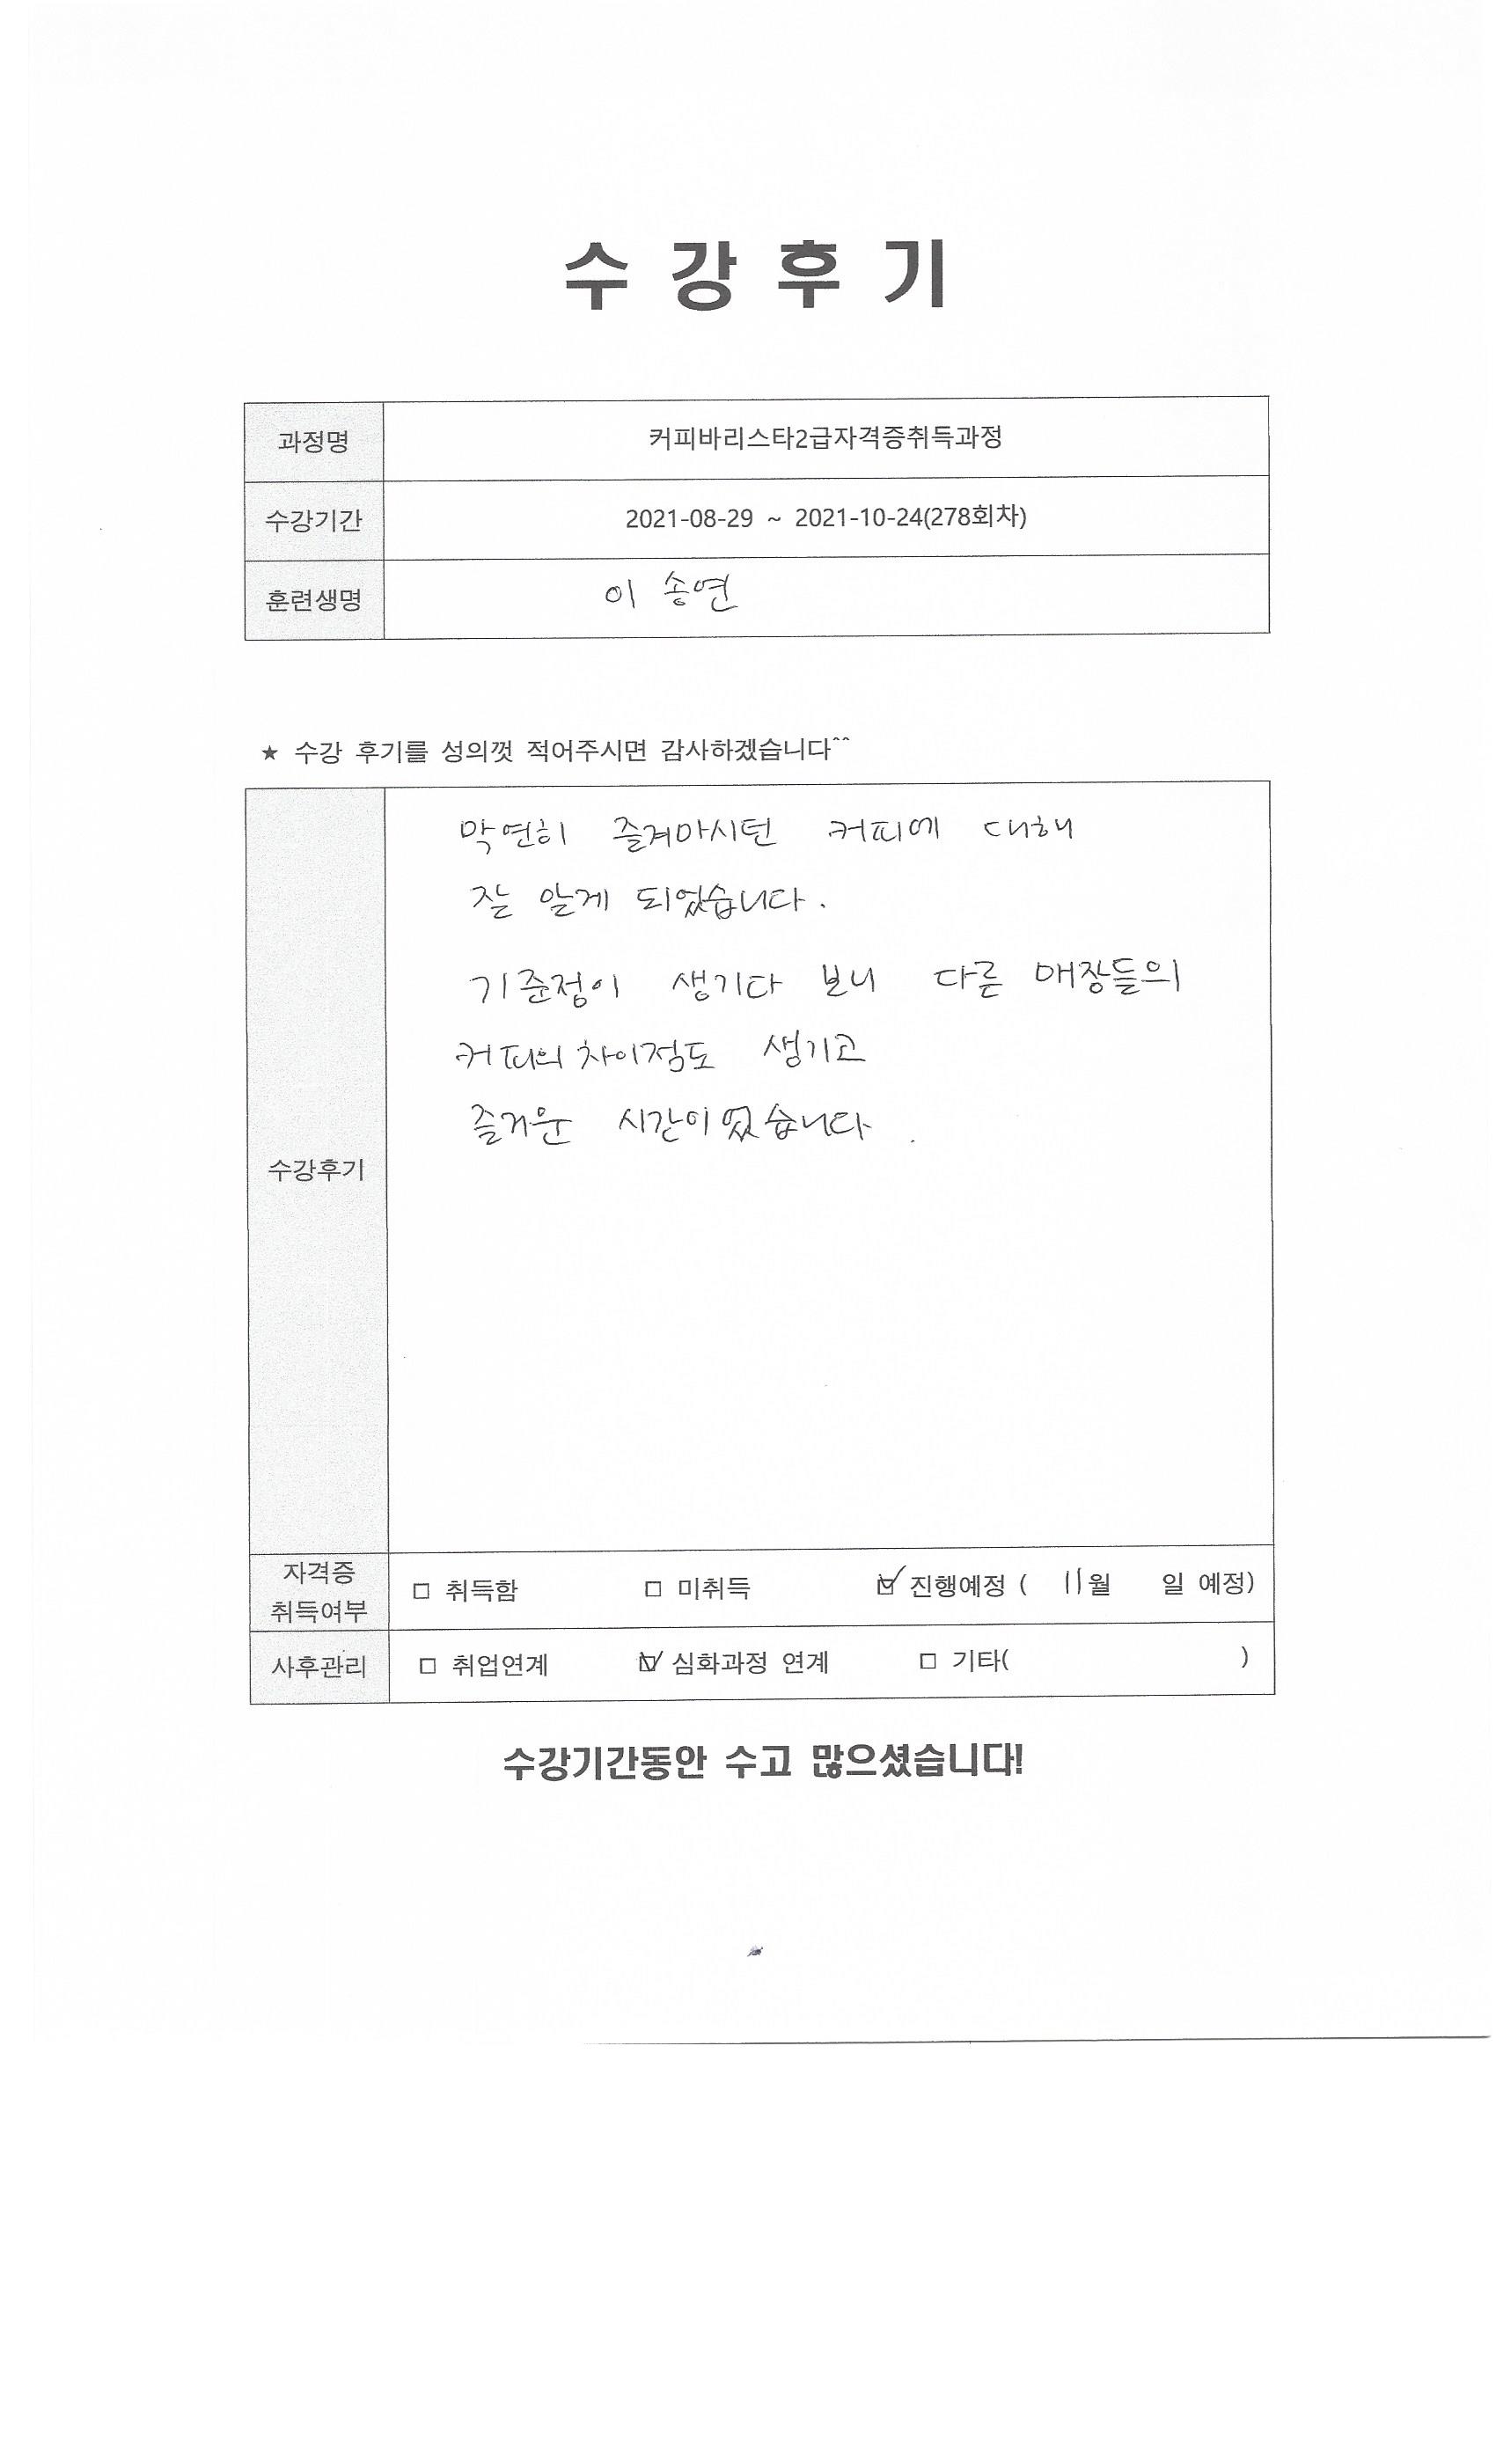 수 강 후 기
과정명 커피바리스타2급자격증취득과정
수강기간 2021-08-29 ~ 2021-10-24(278회차)
훈련생명 이 송연
★ 수강 후기를 성의껏 적어주시면 감사하겠습니다^^
막연히 즐겨마시던 커피에 대해
잘 알게 되었습니다.
기준점이 생기다 보니 다른 매장들의
커피의 차이점도 생기고
즐거운 시간이였습니다.
수강후기
자격증
취득여부
□ 취득함 □ 미취득 ☑ 진행예정 ( 11월 일 예정)
사후관리 □ 취업연계 ☑ 심화과정 연계 □ 기타( )
수강기간동안 수고 많으셨습니다!